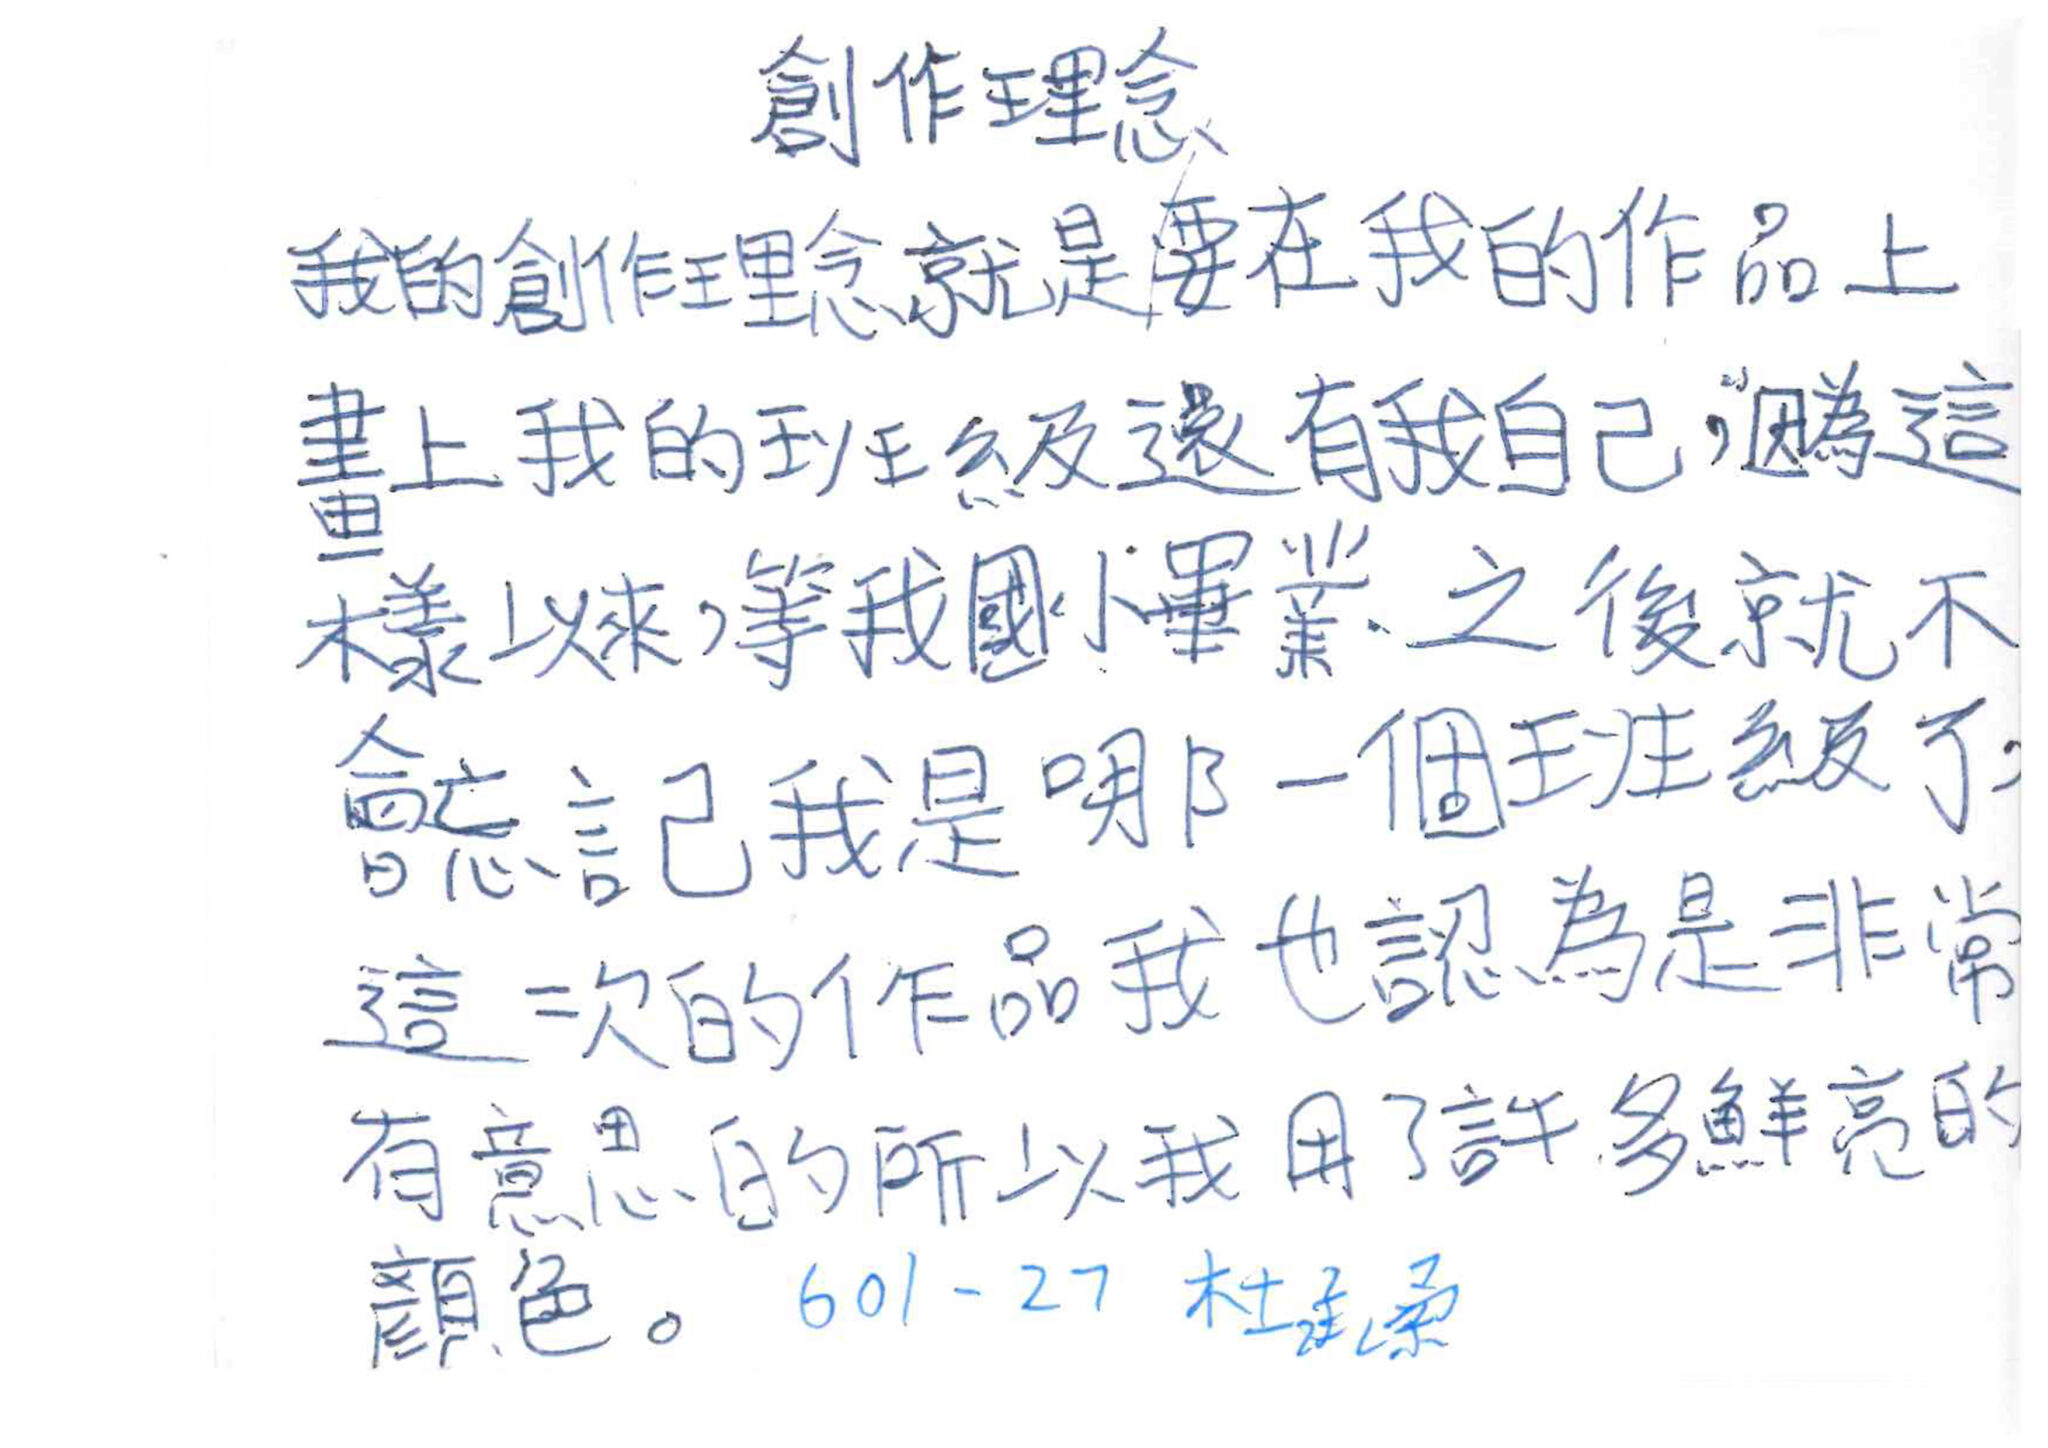 創作理念
我的創作理念就是要在我的作品上
畫上我的班級還有我自己,因為這
樣以來,等我國小畢業之後就不
會忘記我是哪一個班級了,
這一次的作品我也認為是非常
有意思的所以我用了許多鮮亮的
顏色。601-27 杜